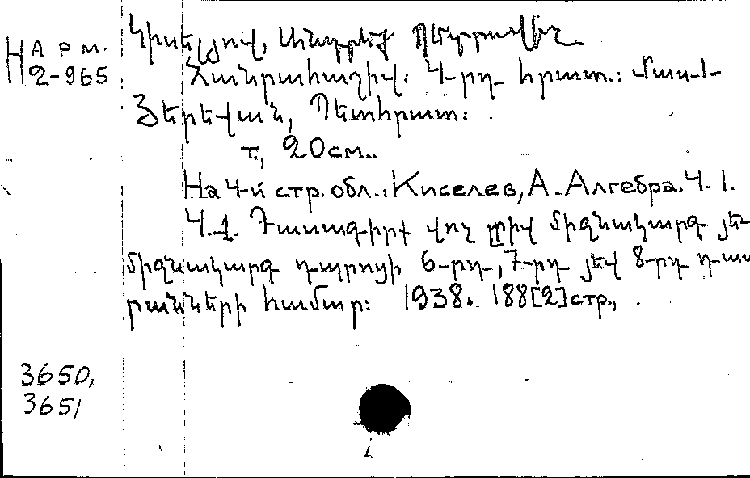 Н А р м.
2-965
Կիսելյով, Անդրեյ Պետրովիչ
Հանրահաշիվ. 4-րդ հրատ.: Մաս-1-
Յերեվան, Պետհրատ:
т., 20см..
На 4-й стр. обл.: Киселев, А. Алгебра. Ч. 1.
Ч. 1. Դասագիրք վոչ լրիվ միջնակարգ յե-
միջնակարգ դպրոցի 6-րդ, 7-րդ յեվ 8-րդ դասա
րանների համար: 1938. 188[2]стр.,
3650,
3651